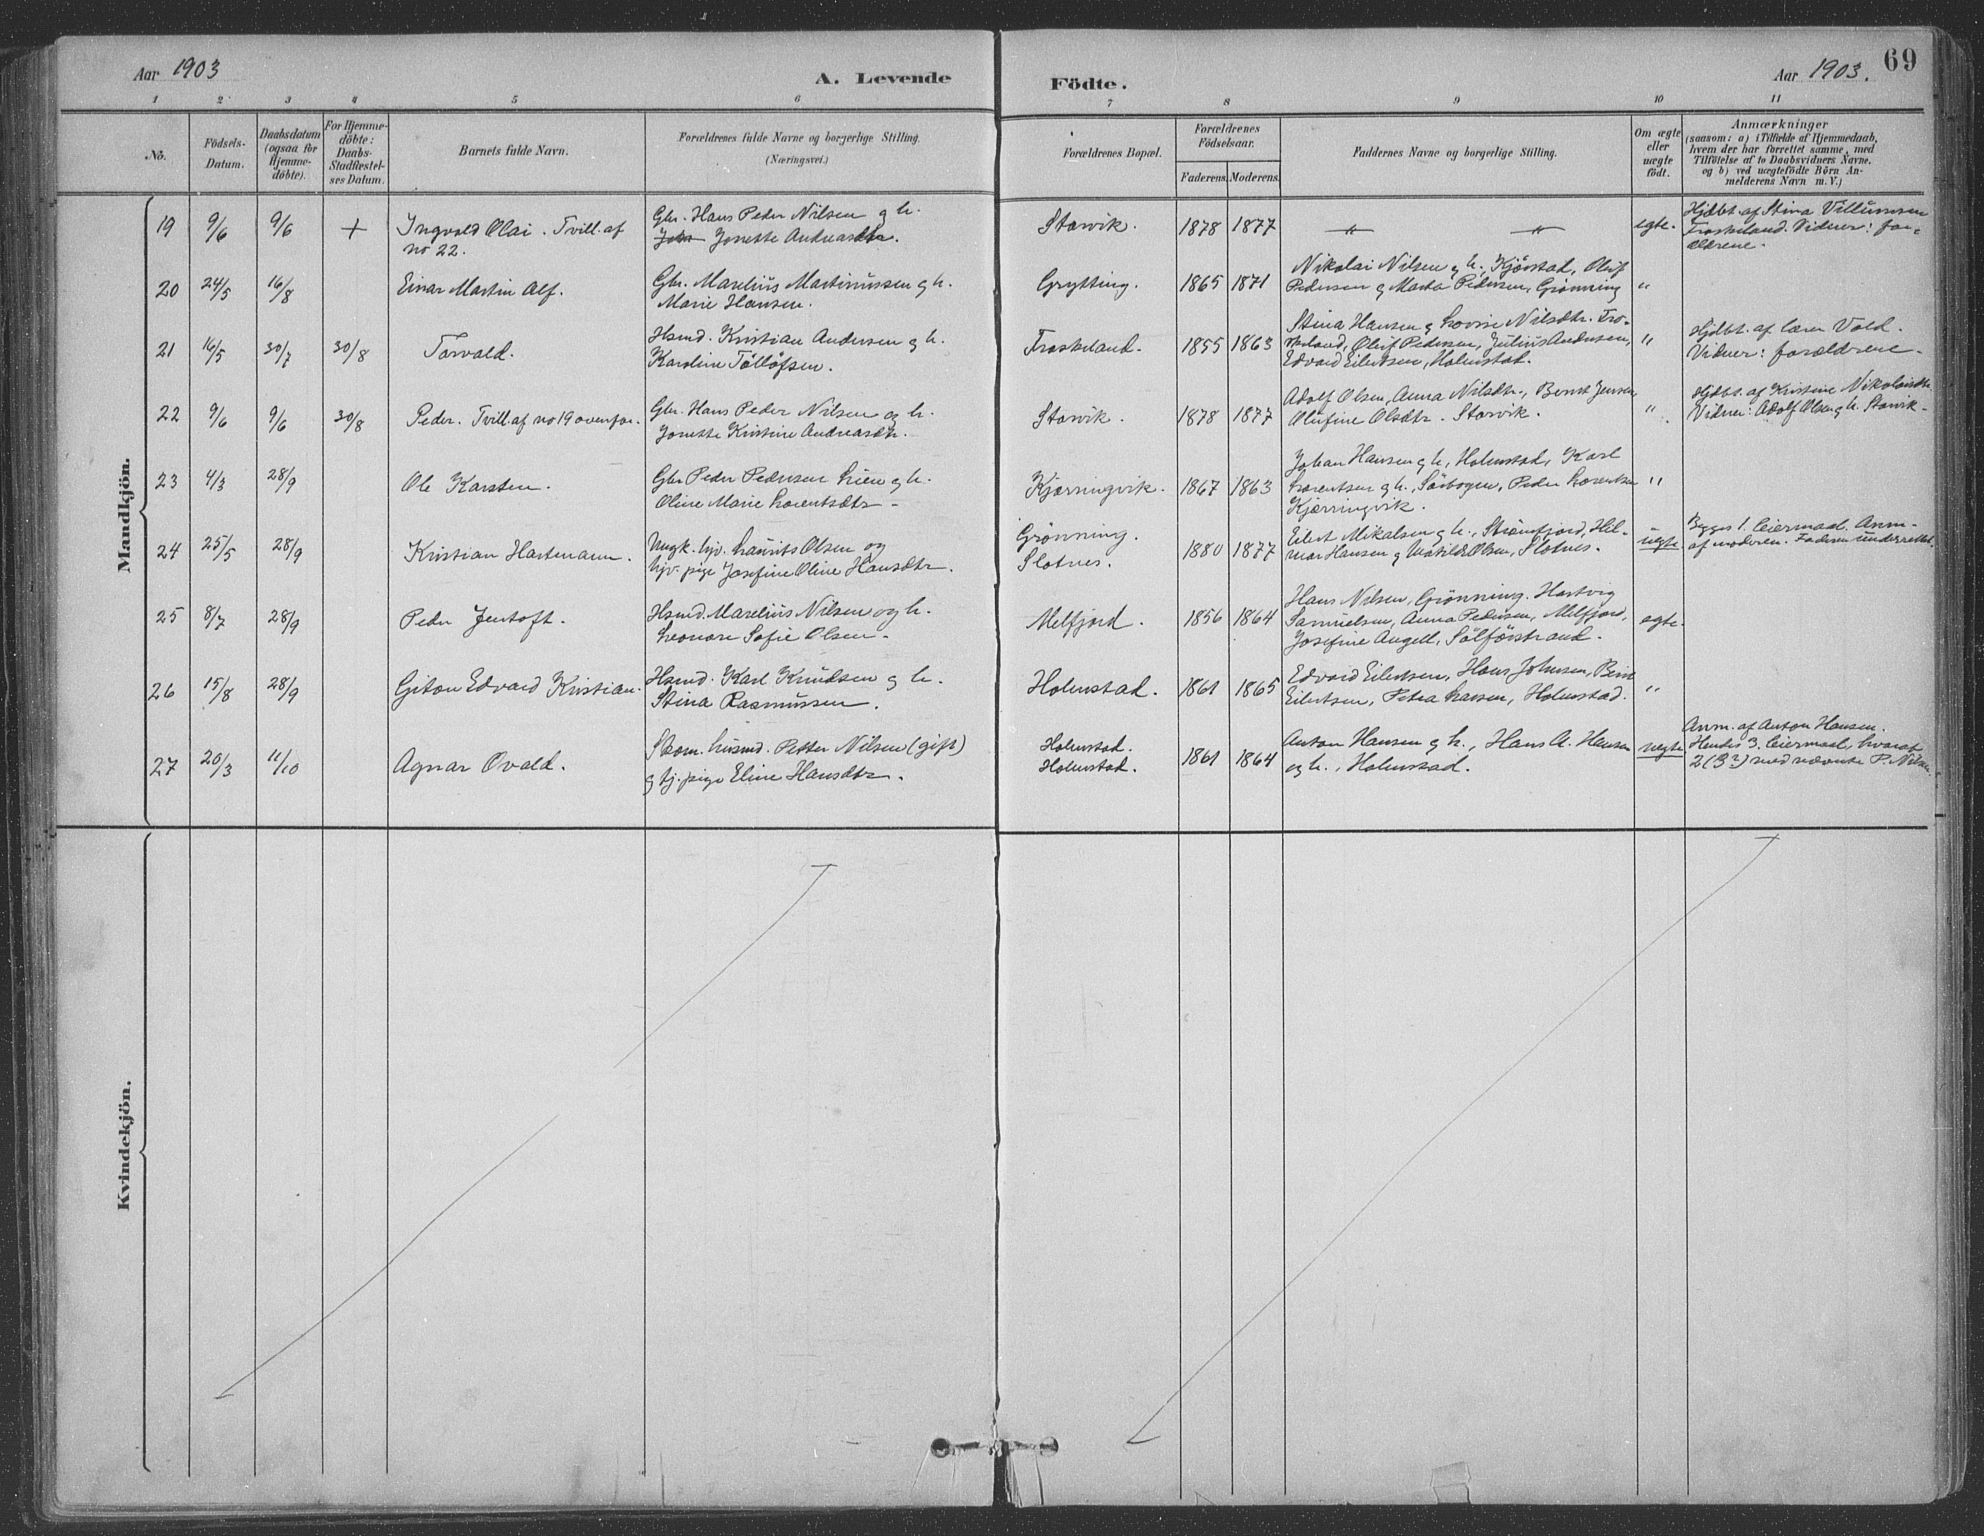 Aar 1903
A. Levende
Födte.
Aar 1903.
69
1 2 3 4 5 6 7 8 9 10 11
No.
Födsels-
Datum.
Daabsdatum
(ogsaa for
Hjemme-
döbte).
For Hjemme-
döbte:
Daabs-
Stadfæstel-
ses Datum.
Barnets fulde Navn.
Forældrenes fulde Navne og borgerlige Stilling.
(Næringsvei.)
Forældrenes Bopæl.
Forældrenes
Födselsaar.
Faderens. Moderens.
Faddernes Navne og borgerlige Stilling.
Om ægte
eller
uægte
födt.
Anmærkninger
(saasom: a) i Tilfælde af Hjemmedaab,
hvem der har forrettet samme, med
Tilföielse af to Daabsvidners Navne.
og b) ved uægtefödte Börn An-
melderens Navn m. V.)
Mandkjön.
19 9/6 9/6 + Ingvald Olai. Tvill. af
no 22.
Gbr. Hans Peder Nilsen og h.
Jonette Andreasdtr.
Starvik. 1878 1877 –〃– –〃– egte.
Hjdbt. af Stina Villumsen
Froskeland. Vidner: for-
ældrene.
20 24/5 16/8 Einar Martin Alf.
Gbr. Marelius Martinussen og h.
Marie Hansen.
Grytting. 1865 1871
Nikolai Nilsen og h., Kjörstad, Oluf
Pedersen og Marta Pedersen, Grönning "
21 16/5 30/7 30/8 Torvald.
Hsmd. Kristian Andersen og h.
Karoline Tollöfsen.
Froskeland. 1855 1863
Stina Hansen og Lovise Nilsdtr. Fro-
skeland, Oluf Pedersen, Julius Andersen,
Edvard Eilertsen, Holmstad. "
Hjdbt. af lærer Vold.
Vidner: forældrene.
22 9/6 9/6 30/8 Peder. Tvill. af no 19 ovenfor.
Gbr. Hans Peder Nilsen og h.
Jonette Kristine Andreasdtr.
Starvik. 1878 1877
Adolf Olsen, Anna Nilsdtr., Bernt Jensen,
Olufine Olsdtr. Starvik. "
Hjdbt. af Kristine Nikolaisdtr.
Vidner: Adolf Olsen og h. Starvik.
23 4/3 28/9 Ole Karsten.
Gbr. Peder Pedersen Lien og h.
Oline Marie Lorentsdtr.
Kjærringvik. 1867 1863
Johan Hansen og h., Holmstad, Karl
Lorentsen og h., Sörbogen, Peder Lorentsen
Kjærringvik. "
24 25/5 28/9 Kristian Hartmann.
Ungk. hjv. Laurits Olsen og
hjv. pige Josefine Oline Hansdtr.
Grönning.
Slotnes. 1880 1877
Eilert Mikalsen og h., Strömfjord, Hil-
mar Hansen og Matilde Olsen, Slotnes. uegte
Begges 1. leiermaal. Anm.
af moderen. Faderen underrettet.
25 8/7 28/9 Peder Jentoft.
Hsmd. Marelius Nilsen og h.
Leonore Sofie Olsen.
Melfjord. 1856 1864
Hans Nilsen, Grönning. Hartvig
Samuelsen, Anna Pedersen, Melfjord,
Josefine Angell, Sölförstrand. egte.
26 15/8 28/9 Giton Edvard Kristian.
Hsmd. Karl Knudsen og h.
Stina Rasmussen.
Holmstad. 1861 1865
Edvard Eilertsen, Hans Johnsen, Berit
Eilertsen, Petra Larsen, Holmstad. "
27 20/3 11/10 Agnar Ovald.
husmd. Petter Nilsen (gift)
og tj. pige Eline Hansdtr.
Holmstad.
Holmstad. 1861 1864
Anton Hansen og h., Hans A. Hansen
og h., Holmstad. uegte
Anm. af Anton Hansen.
Hendes 3. leiermaal, hvoraf
2 (3?) med nævnte P. Nilsen.
Kvindekjön.